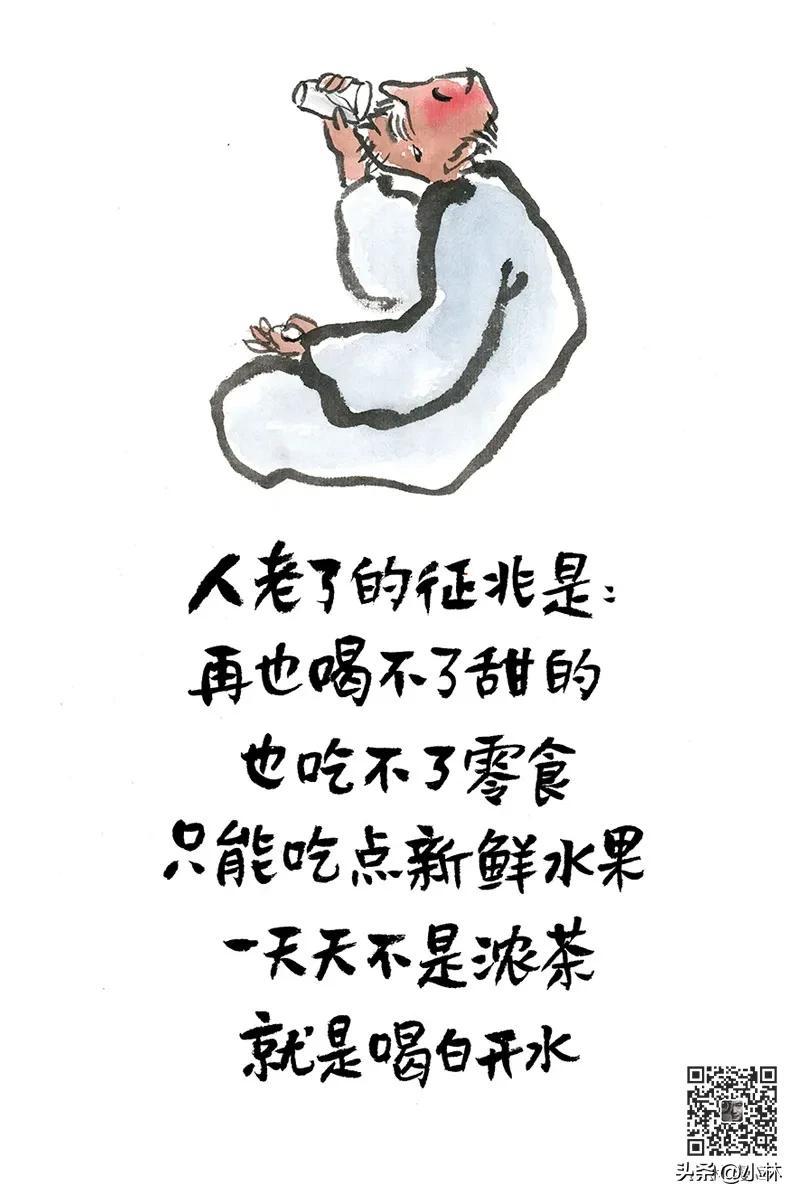 人老了的征兆是：
再也喝不了甜的
也吃不了零食
只能吃点新鲜水果
一天天不是浓茶
就是喝白开水
头条@小林